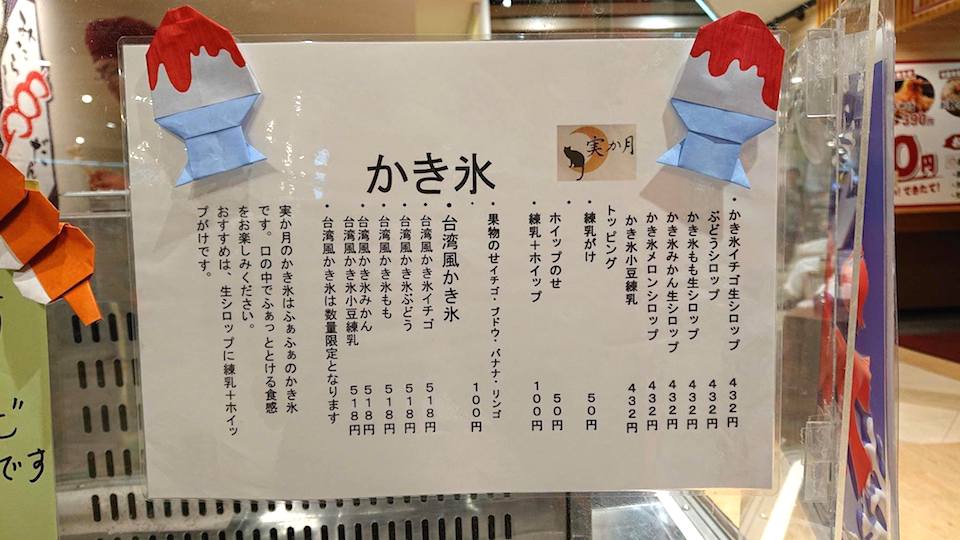 かき氷
実か月
・かき氷イチゴ生シロップ 432円
ぶどうシロップ 432円
かき氷もも生シロップ 432円
かき氷みかん生シロップ 432円
かき氷メロンシロップ 432円
かき氷小豆練乳 432円
トッピング
・練乳がけ 50円
・ホイップのせ 50円
・練乳+ホイップ 100円
・果物のせイチゴ・ブドウ・バナナ・リンゴ 100円
・台湾風かき氷
・台湾風かき氷イチゴ 518円
・台湾風かき氷ぶどう 518円
・台湾風かき氷もも 518円
・台湾風かき氷みかん 518円
台湾風かき氷小豆練乳 518円
・台湾風かき氷は数量限定となります
実か月のかき氷はふぁふぁのかき氷
です。口の中でふぁっととける食感
をお楽しみください。
おすすめは、生シロップに練乳+ホイッ
プがけです。
です
390円
0円
できたて!